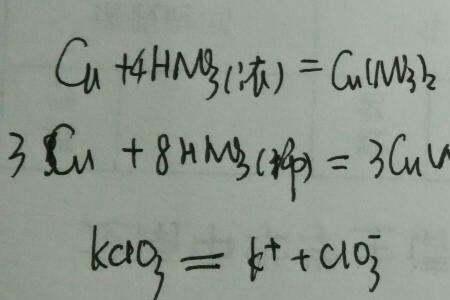 Cu + 4HNO₃(浓) = Cu(NO₃)₂
3Cu + 8HNO₃(稀) = 3Cu(N
KClO₃ = K⁺ + ClO₃⁻